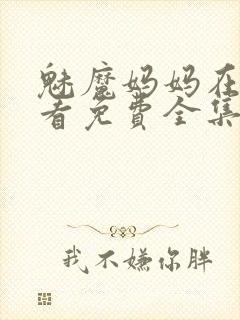 魅魔妈妈在
看免费全集
我不嫌你胖